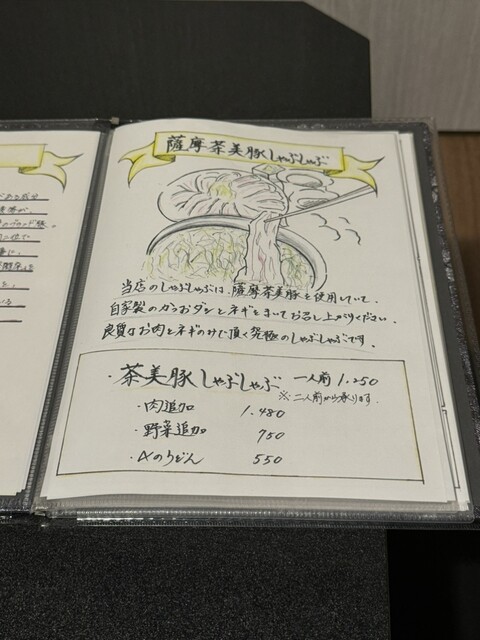 薩摩茶美豚しゃぶしゃぶ
当店のしゃぶしゃぶは、薩摩茶美豚を使用していて、
自家製のかつおダシとネギをまいてお召し上がりください。
良質なお肉とネギのみで頂く究極のしゃぶしゃぶです。
・茶美豚しゃぶしゃぶ 一人前 1.250
※二人前から承ります。
・肉追加 1.480
・野菜追加 750
・〆のうどん 550